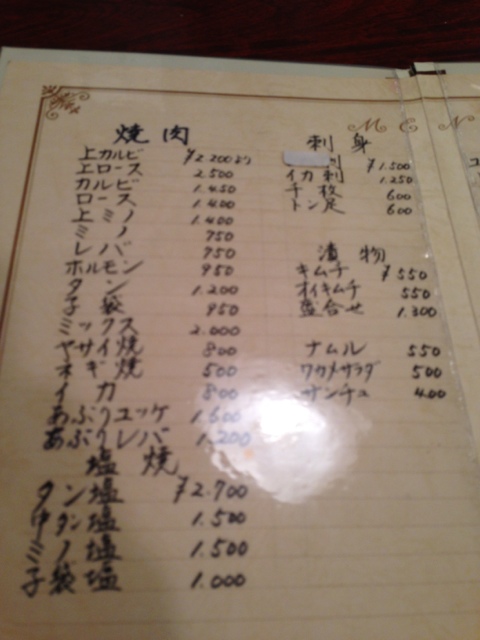 MEN
焼肉
上カルビ ¥2.200より
上ロース 2.500
カルビ 1.450
ロース 1.400
上ミノ 1.400
ミノ 750
レバー 750
ホルモン 950
タン 1.200
子袋 950
ミックス 2.000
ヤサイ焼 800
ネギ焼 500
イカ 800
あぶりユッケ 1.600
あぶりレバ 1.200
塩焼
タン塩 ¥2.700
中タン塩 1.500
ミノ塩 1.500
子袋塩 1.000
刺身
刺 ¥1.500
イカ刺 1.250
千枚 600
トン足 600
漬物
キムチ ¥550
オイキムチ 550
盛合せ 1.300
ナムル 550
ワカメサラダ 500
サンチュ 400